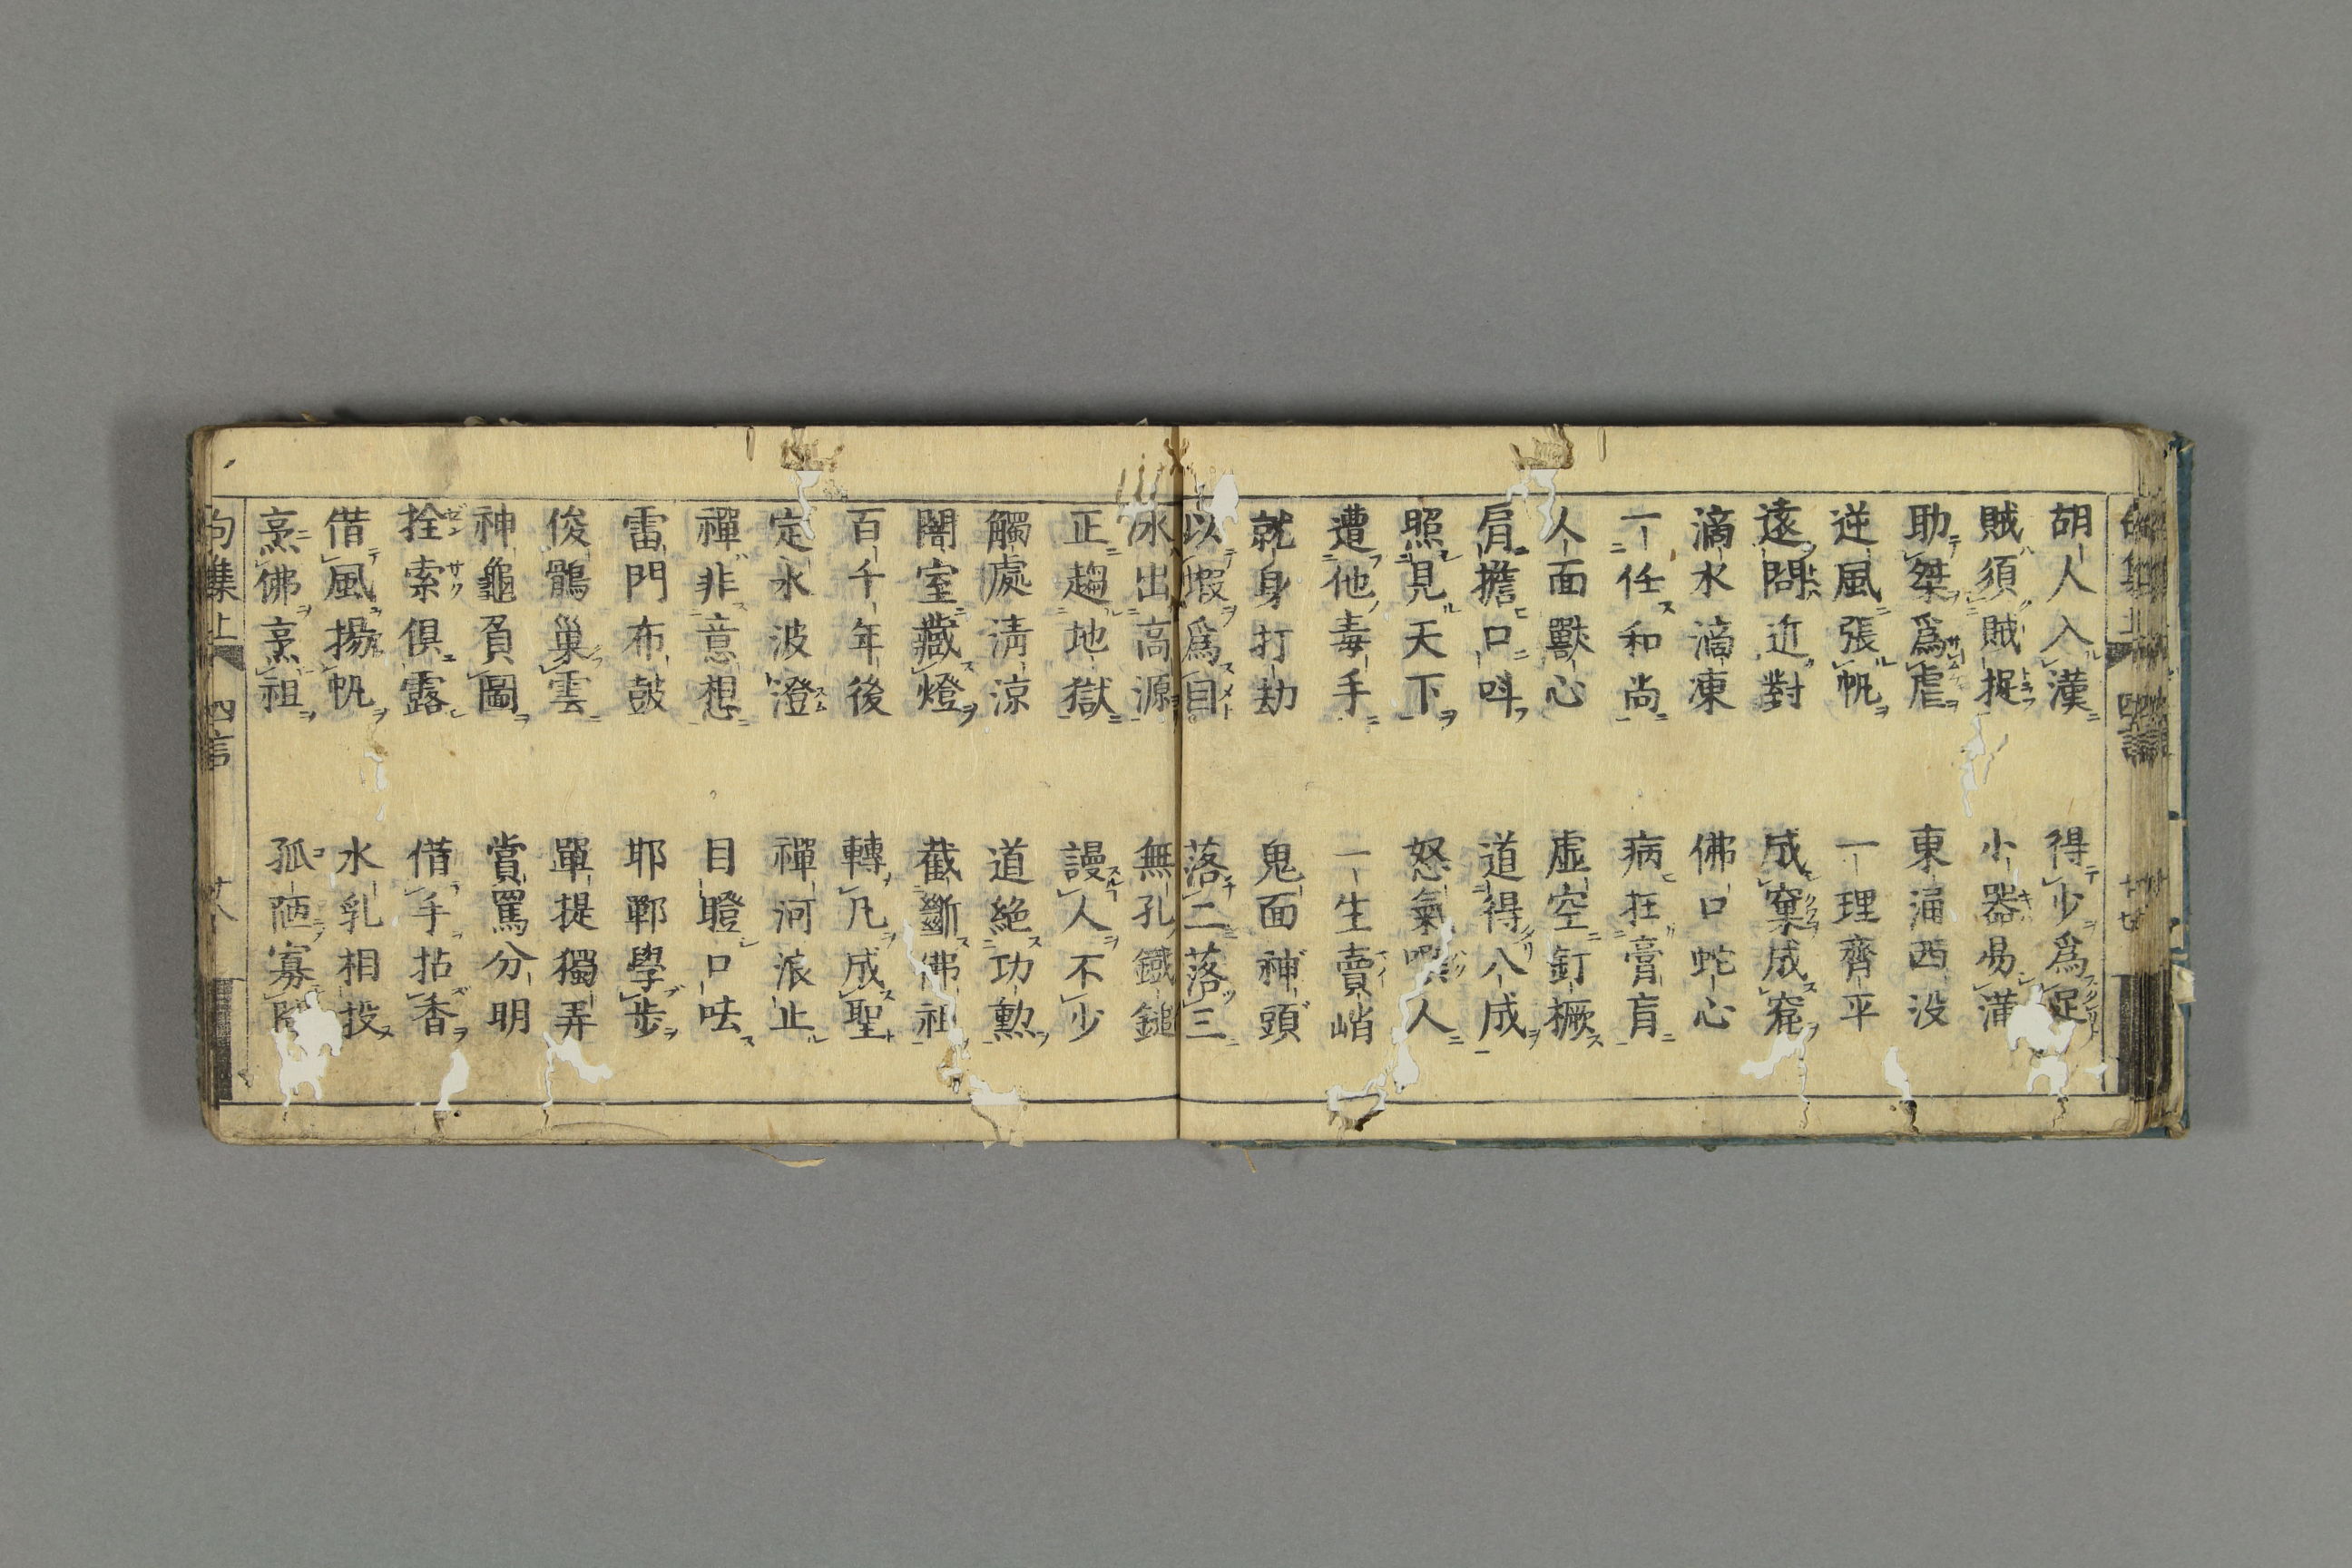 胡人入漢 得少爲足
賊須賊捉 小器易滿
助桀爲虐 東涌西没
逆風張帆 一理齊平
遠問近對 成窠成窟
滴水滴凍 佛口蛇心
一任和尚 病在膏肓
人面獸心 虚空釘橛
肩擔口呌 道得八成
照見天下 怒氣噀人
遭他毒手 一生賣峭
就身打劫 鬼面神頭
以蝦爲目 落二落三
冰出高源 無孔鐵鎚
正趨地獄 謾人不少
觸處淸涼 道絶功勲
闇室藏燈 截斷佛祖
百千年後 轉凡成聖
定水波澄 禪河浪止
禪非意想 目瞪口呿
雷門布鼓 邯鄲學步
俊鶻巢雲 單提獨弄
神龜負圖 賞罵分明
拴索俱露 借手拈香
借風揚帆 水乳相投
烹佛烹祖 孤陋寡
句集上 四言 廿八